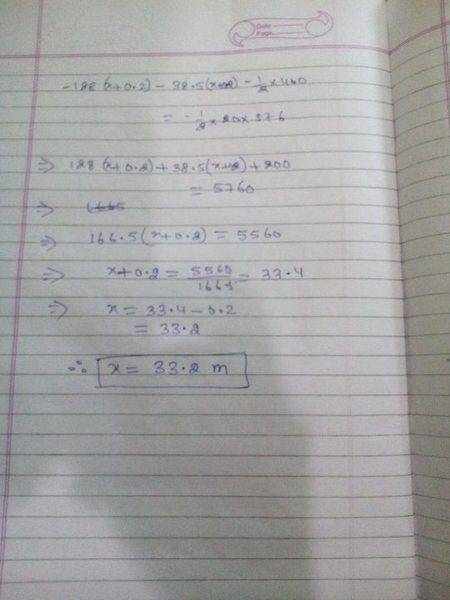 Date
Page
-128(x+0.2) - 38.5(x+0.2) - 1/2 × 400
= - 1/2 × 20 × 576
⇒ 128(x+0.2) + 38.5(x+0.2) + 200
= 5760
⇒
⇒ 166.5(x+0.2) = 5560
⇒ x+0.2 = 5560/166.5 = 33.4
⇒ x = 33.4 - 0.2
= 33.2
∴ x = 33.2 m